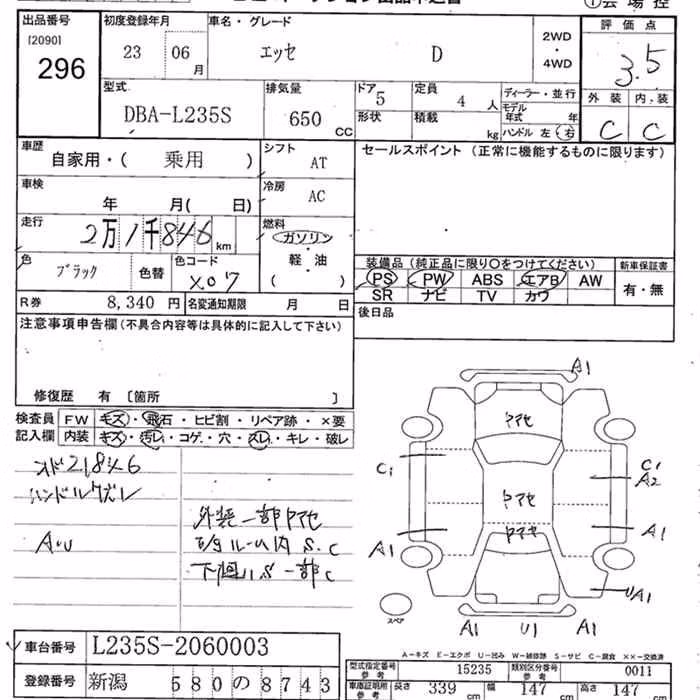 出品番号 初度登録年月 車名・グレード 評価点
[2090]
296
23 06 月 エッセ D 2WD ・ 4WD 3.5
型式 排気量 ドア 定員 ディーラー・並行 外装 内装
DBA-L235S 650 CC 5 4 人 モデル年式 年 C C
形状 積載 kg ハンドル 左・右
車歴 自家用・( 乗用 ) シフト AT セールスポイント (正常に機能するものに限ります)
車検 年 月( 日) 冷房 AC
走行 2万1千846 km 燃料 ガソリン・軽・油 ( )
色 ブラック 色替 色コード X07
装備品 (純正品に限り〇をつけてください) 新車保証書
PS PW ABS エアB AW 有・無
SR ナビ TV カワ
R券 8,340 円 名変通知期限 月 日 後日品
注意事項申告欄(不具合内容等は具体的に記入して下さい)
修復歴 有 [箇所 ]
検査員 FW キズ・飛石・ヒビ割・リペア跡・×要
記入欄 内装 キズ・汚レ・コゲ・穴・スレ・キレ・破レ
ハンドルスレ
外装一部ヤマセ
下廻りS一部C
A1
ヤマセ
C1 C1
A2
ヤマセ
A1 ヤマセ A1
UA1
スペア A1 U1 A1
A-キズ E-エクボ U-凹み W-補修跡 S-サビ C-腐食 ××-交換済
車台番号 L235S-2060003
登録番号 新潟 580の8743
型式指定番号 参考 15235 類別区分番号 参考 0011
車庫証明用 参考 長さ 339 cm 幅 147 cm 高さ 147 cm